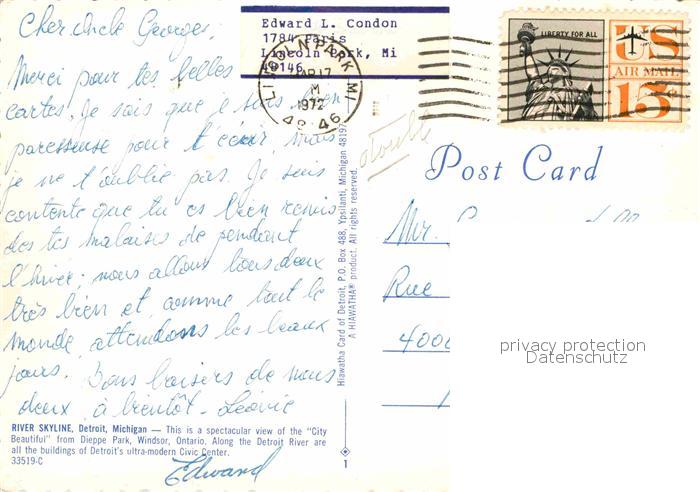 Cher Uncle Georges,
Merci pour tes belles
cartes. Je sais que je suis bien
paresseuse pour t'écrir, mais
je ne t'oublie pas. Je suis
contente que tu es bien remis
des tes malaises de pendant
l'hiver; nous allons tous deux
très bien et, comme tout le
monde, attendons les beaux
jours. Bons baisers de nous
deux, à bientôt - Léonie
Edward
RIVER SKYLINE, Detroit, Michigan — This is a spectacular view of the "City
Beautiful" from Dieppe Park, Windsor, Ontario. Along the Detroit River are
all the buildings of Detroit's ultra-modern Civic Center.
33519-C
Edward L. Condon
1784 Paris
Lincoln Park, Mi
48146
LINCOLN PARK MI
MAR 17
M
1972
48146
LIBERTY FOR ALL
US
AIR MAIL
15¢
double
Hiawatha Card of Detroit, P.O. Box 488, Ypsilanti, Michigan 48197
A HIAWATHA® product. All rights reserved.
1
Post Card
Mr.
Rue
4000
privacy protection
Datenschutz